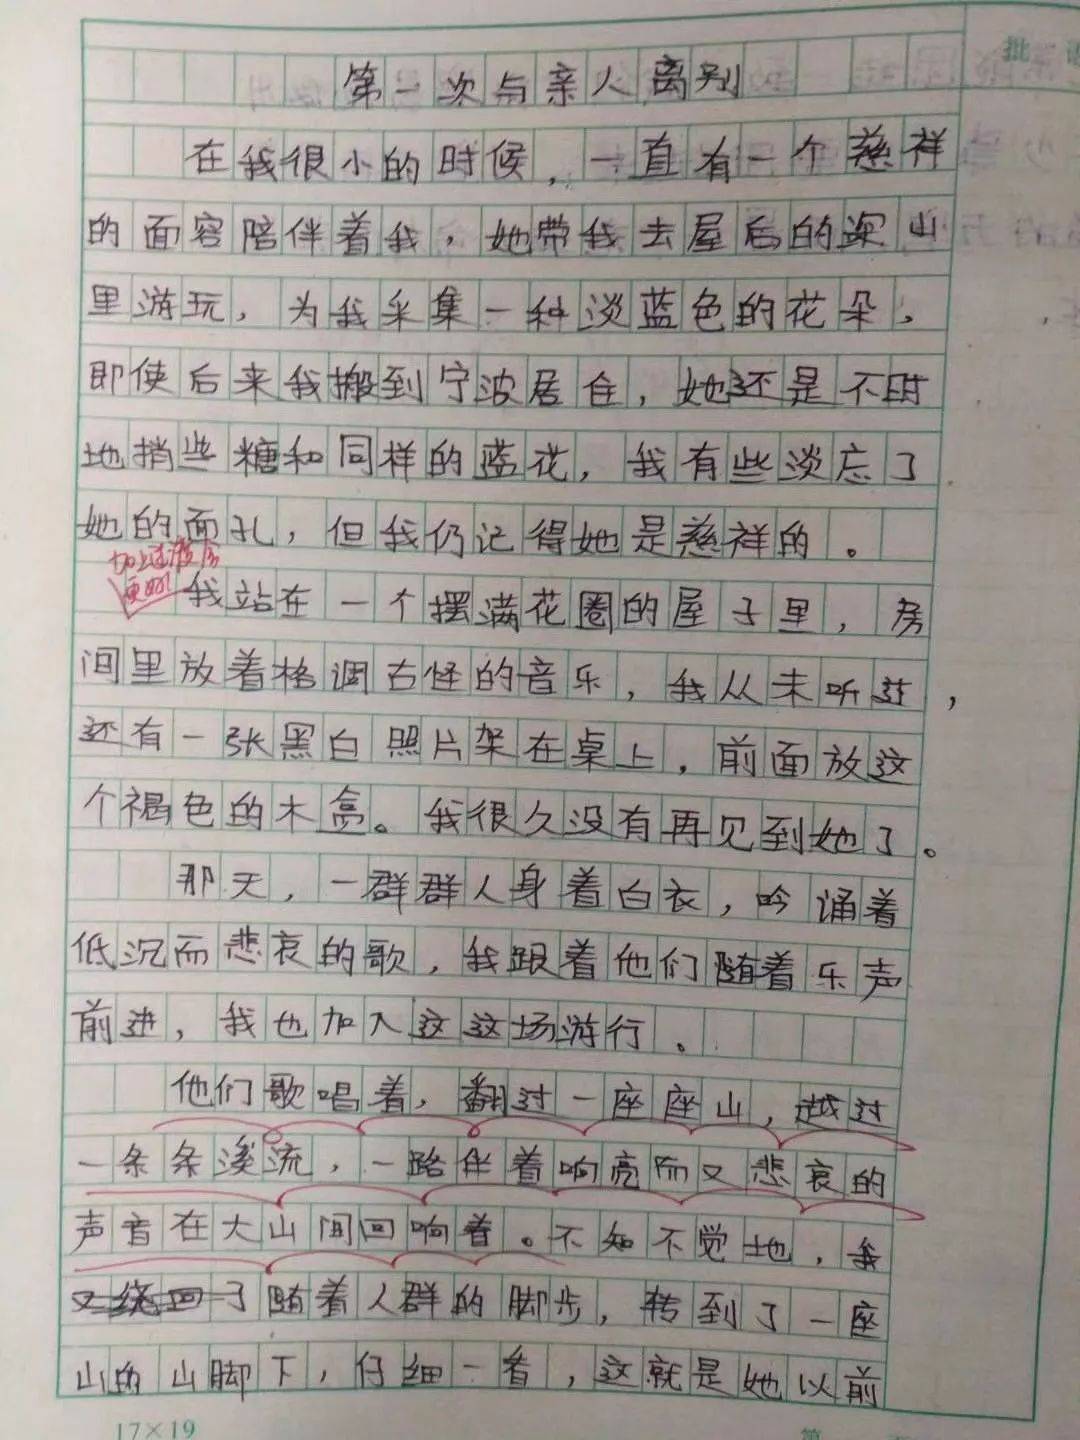 批
第一次与亲人离别
在我很小的时候，一直有一个慈祥
的面容陪伴着我，她带我去屋后的深山
里游玩，为我采集一种淡蓝色的花朵，
即使后来我搬到宁波居住，她还是不时
地捎些糖和同样的蓝花，我有些淡忘了
她的面孔，但我仍记得她是慈祥的。
加上过渡句
更好!
我站在一个摆满花圈的屋子里，房
间里放着格调古怪的音乐，我从未听过，
还有一张黑白照片架在桌上，前面放这
个褐色的木盒。我很久没有再见到她了。
那天，一群群人身着白衣，吟诵着
低沉而悲哀的歌，我跟着他们随着乐声
前进，我也加入这这场游行。
他们歌唱着，翻过一座座山，越过
一条条溪流，一路伴着响亮而又悲哀的
声音在大山间回响着。不知不觉地，我
又绕回了随着人群的脚步，转到了一座
山的山脚下，仔细一看，这就是她以前
17×19
第